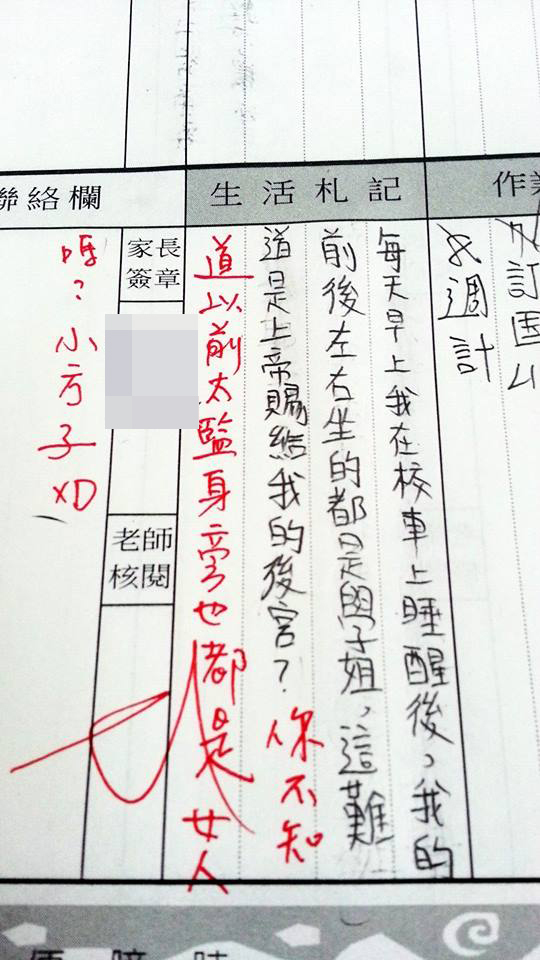 生活札記
聯絡欄
週計
每天早上我在校車上睡醒後，我的
前後左右坐的都是學姐，這難
道是上帝賜給我的後宮？你不知
道以前太監身旁也都是女人
家長
簽章
老師
核閱
嗎？小方子XD